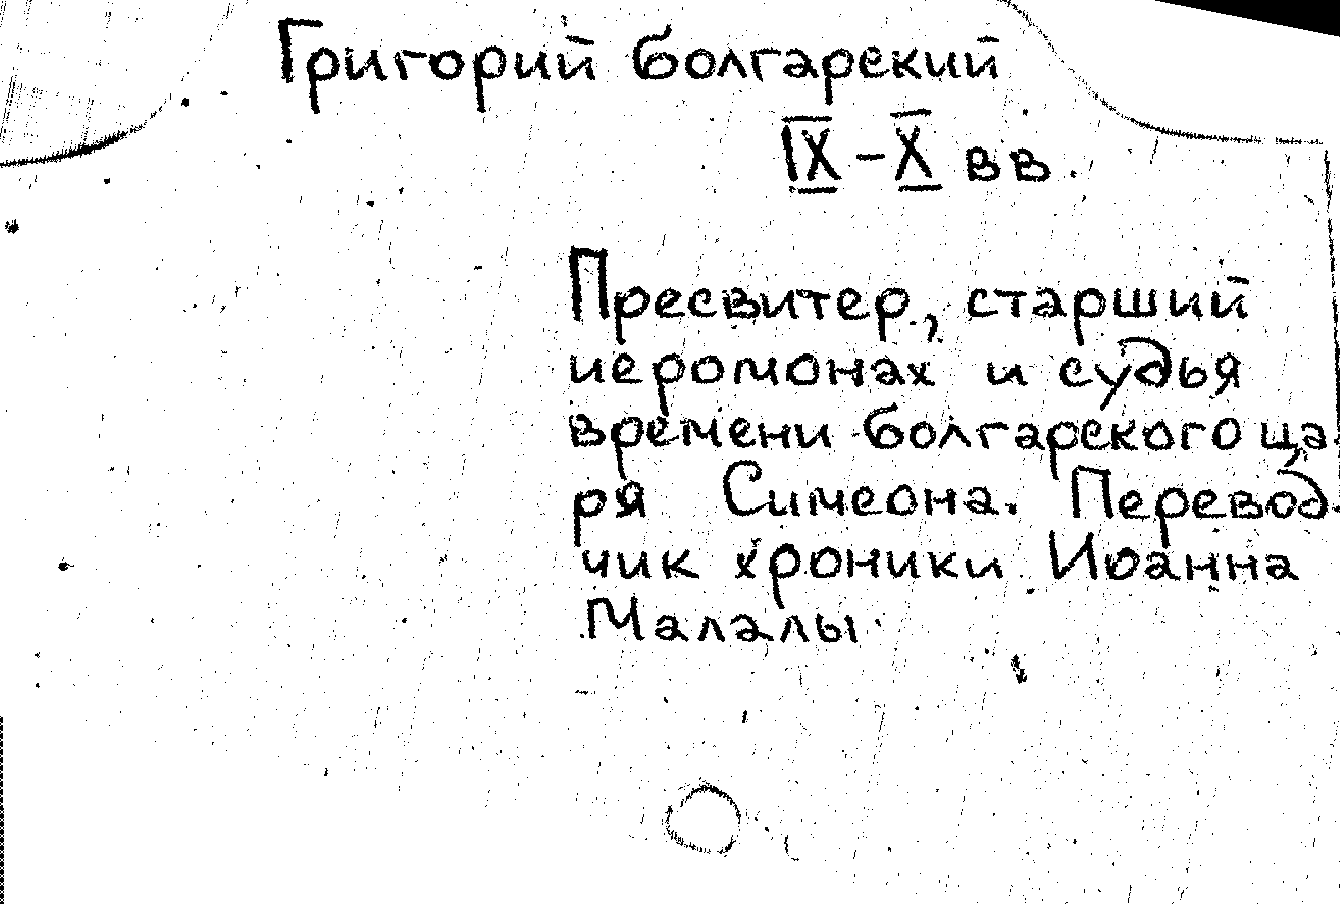 Григорий болгарский
IX - X вв.
Пресвитер, старший
иеромонах и судья
времени болгарского ца-
ря Симеона. Перевод-
чик хроники Иоанна
Малалы